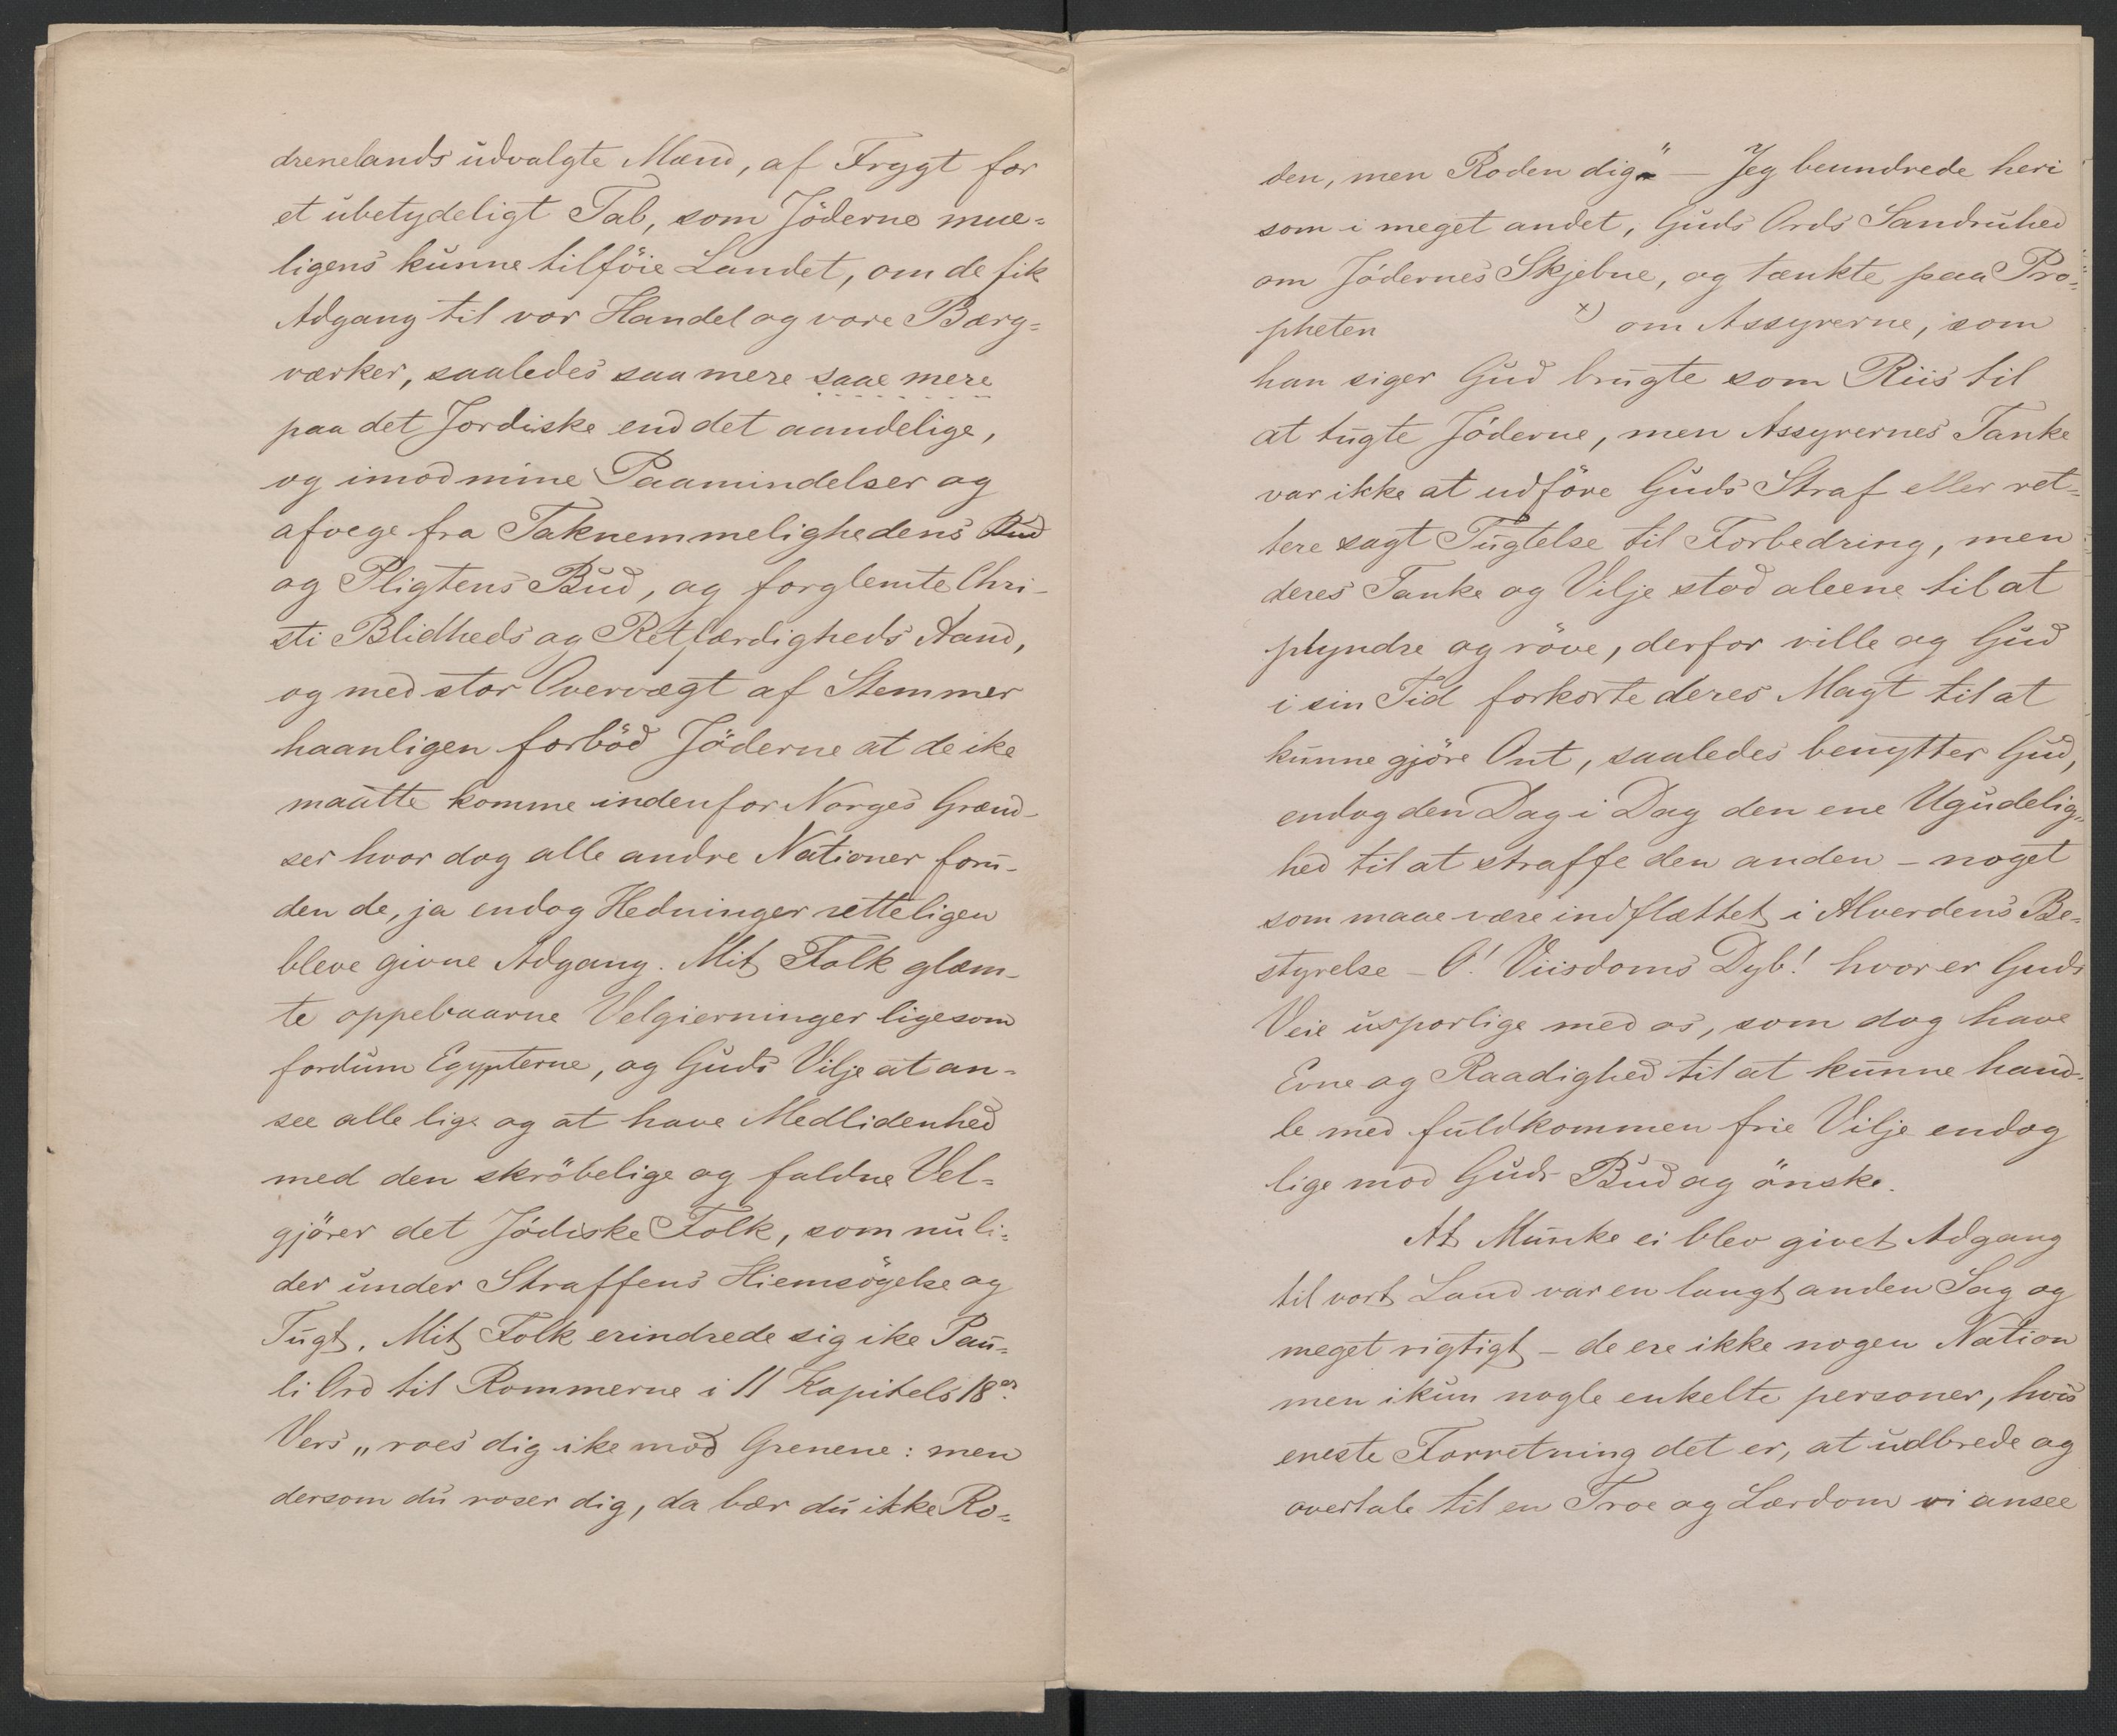 drenelands udvalgte Mænd, af Frygt for
et ubetydeligt Tab, som Jöderne mue=
ligens kunne tilföie Landet, om de fik
Adgang til vor Handel og vore Bærg=
værker, saaledes saa mere saae mere
paa det Jordiske end det aandelige,
og imod mine Paamindelser og
afvege fra Taknemmelighedens Bud
og Pligtens Bud, og forglemte Chri-
sti Blidheds og Retfærdigheds Aand,
og med stor Overvægt af Stemmer
haanligen forböd Jöderne at de ike
maatte komme indenfor Norges Grænd-
ser hvor dog alle andre Nationer foru-
den de, ja endog Hedninger retteligen
bleve givne Adgang. Mit Folk glæm-
te oppebaarne Velgierninger ligesom
fordum Egypterne, og Guds Vilje at an=
see alle lige og at have Medlidenhed
med den skröbelige og faldne Vel=
gjörer det Jödiske Folk, som nu li=
der under Straffens Hiemsögelse og
Tugt. Mit Folk erindrede sig ike Pau=
li Ord til Rommerne i 11 Kapitels 18er
Vers „roes dig ike mod Grenene: men
dersom du roser dig, da bær du ikke Ro=
den, men Roden dig" — Jeg beundrede heri
som i meget andet, Guds Ords Sandruhed
om Jödernes Skjebne, og tænkte paa Pro=
pheten x) om Assyrerne, som
han siger Gud brugte som Riis til
at tugte Jöderne, men Assyrernes Tanke
var ikke at udföre Guds Straf eller ret=
tere sagt Tugtelse til Forbedring, men
deres Tanke og Vilje stod aleene til at
plyndre og röve, derfor ville og Gud
i sin Tid forkorte deres Magt til at
kunne gjöre Ont, saaledes benytter Gud,
endog den Dag i Dag den ene Ugudelig=
hed til at straffe den anden – noget
som maae være indflættet i Alverdens Be=
styrelse – O! Viisdoms Dyb! hvor er Guds
Veie usporlige med os, som dog have
Evne og Raadighed til at kunne hand=
le med fuldkommen frie Vilje endog
lige mod Guds Bud og önske.
At Munke ei blev givet Adgang
til vort Land var en langt anden Sag og
meget rigtigt – de ere ikke nogen Nation
men ikun nogle enkelte personer, hvis
eneste Forretning det er, at udbrede og
overtale til en Troe og Lærdom vi ansee